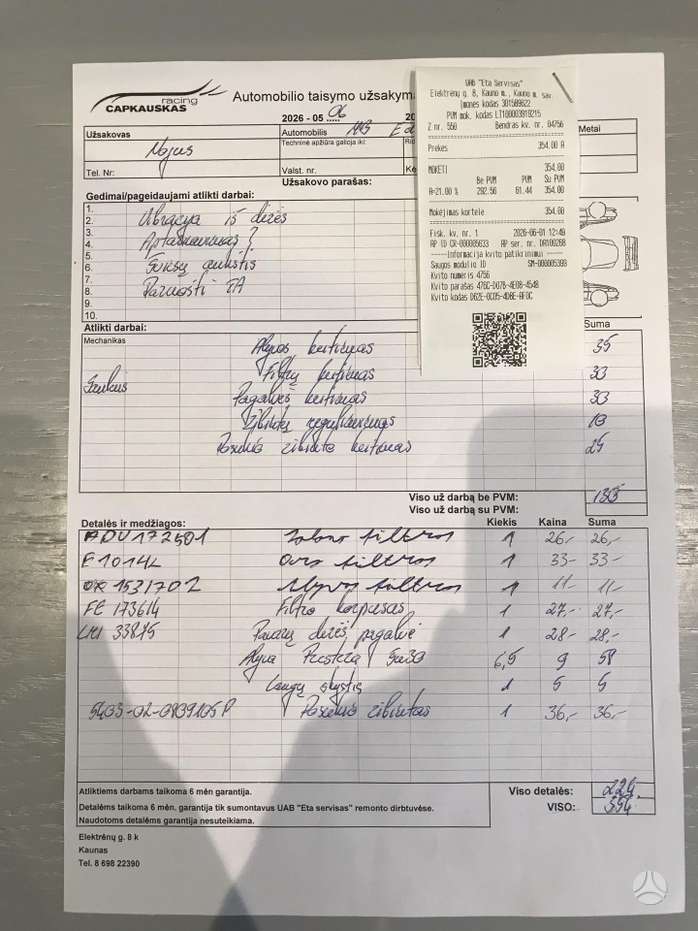 racing
CAPKAUSKAS
Automobilio taisymo užsakym
2026 - 05 06
Užsakovas
Automobilis MB
Metai
Nojus
Techninė apžiūra galioja iki:
Tel. Nr:
Valst. nr.
Užsakovo parašas:
UAB "Eta Servisas"
Elektrėnų g. 8, Kauno m., Kauno m. sav.
Įmonės kodas 301509622
PVM mok. kodas LT100003919215
Z nr. 550 Bendras kv. nr. 04756
Prekės 354.00 A
MOKĖTI 354.00
Be PVM PVM Su PVM
A=21.00 % 292.56 61.44 354.00
Mokėjimas kortele 354.00
Fisk. kv. nr. 1 2026-06-01 12:49
AP ID CR-000005633 AP ser. nr. DA100268
Informacija kvito patikrinimui
Saugos modulio ID SM-000005393
Kvito numeris 4756
Kvito parašas 476C-D07B-4E0B-454B
Kvito kodas D62E-0C05-4DBE-AF0C
Gedimai/pageidaujami atlikti darbai:
1.
2. Vibracija iš dėžės
3.
4. Aptarnavimas?
5.
6.
7.
8. Paruošti TA
9.
10.
Atlikti darbai:
Suma
Mechanikas
Alyvos keitimas 35
Filtrų keitimas 30
Pagalvės keitimas 30
Žibintų reguliavimas 10
Posūkio žibinto keitimas 25
Viso už darbą be PVM: 130
Viso už darbą su PVM:
Detalės ir medžiagos: Kiekis Kaina Suma
ADU172501 Salono filtras 1 26,- 26,-
E1014L Oro filtras 1 33- 33-
OX 153/7D2 Alyvos filtras 1 11- 11-
FE 173614 Filtro korpusas 1 27,- 27,-
LMI 33875 Pavarų dėžės pagalvė 1 28- 28,-
Alyva 5w30 6,5 9 58
Langų skystis 1 5 5
5403-02-0809105P Posūkio žibintas 1 36,- 36,-
Atliktiems darbams taikoma 6 mėn. garantija.
Viso detalės: 224
Detalėms taikoma 6 mėn. garantija tik sumontavus UAB "Eta servisas" remonto dirbtuvėse.
VISO: 354
Naudotoms detalėms garantija nesuteikiama.
Elektrėnų g. 8 k
Kaunas
Tel. 8 698 22390